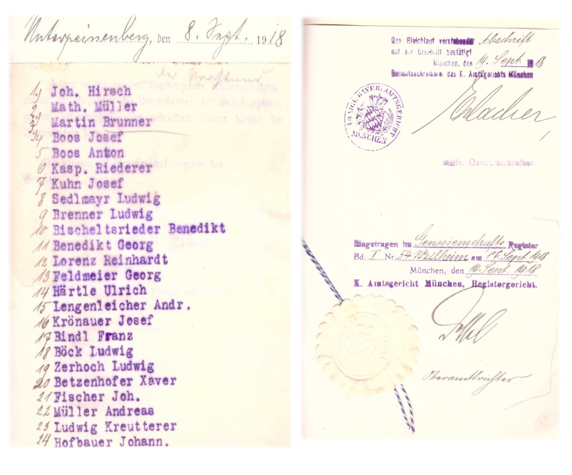 Unterpeissenberg, den 8. Sept. 1918
1 Joh. Hirsch
2 Math. Müller
3 Martin Brunner
4 Boos Josef
5 Boos Anton
6 Kasp. Riederer
7 Kuhn Josef
8 Sedlmayr Ludwig
9 Brenner Ludwig
10 Bischeltsrieder Benedikt
11 Benedikt Georg
12 Lorenz Reinhardt
13 Feldmeier Georg
14 Härtle Ulrich
15 Lengenleicher Andr.
16 Krönauer Josef
17 Bindl Franz
18 Böck Ludwig
19 Zerhoch Ludwig
20 Betzenhofer Xaver
21 Fischer Joh.
22 Müller Andreas
23 Ludwig Kreutterer
24 Hofbauer Johann.
Den Gleichlaut vorstehender Abschrift
mit der Urschrift bestätigt
München, den 19. Sept. 1918
Gerichtsschreiberei des K. Amtsgerichts München
MÜNCHEN
Eingetragen im Genossenschafts Register
Bd. I Nr. 54 Weilheim am 17. Sept. 1918
München, den 19. Sept. 1918
K. Amtsgericht München, Registergericht.
Oberamtsrichter